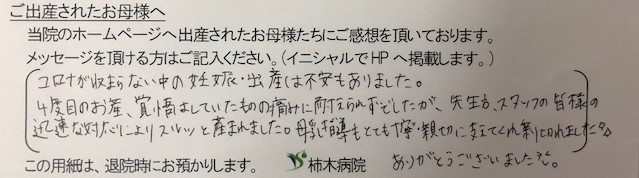 ご出産されたお母様へ
当院のホームページへ出産されたお母様たちにご感想を頂いております。
メッセージを頂ける方はご記入ください。(イニシャルでHPへ掲載します。)
コロナが収まらない中の妊娠・出産は不安もありました。
4度目のお産、覚悟はしていたものの痛みに耐えられずでしたが、先生方、スタッフの皆様の
迅速な対応によりスルッと産まれました。母乳指導もとても丁寧・親切に教えてくれ
この用紙は、退院時にお預かりします。 柿木病院 ありがとうございました。